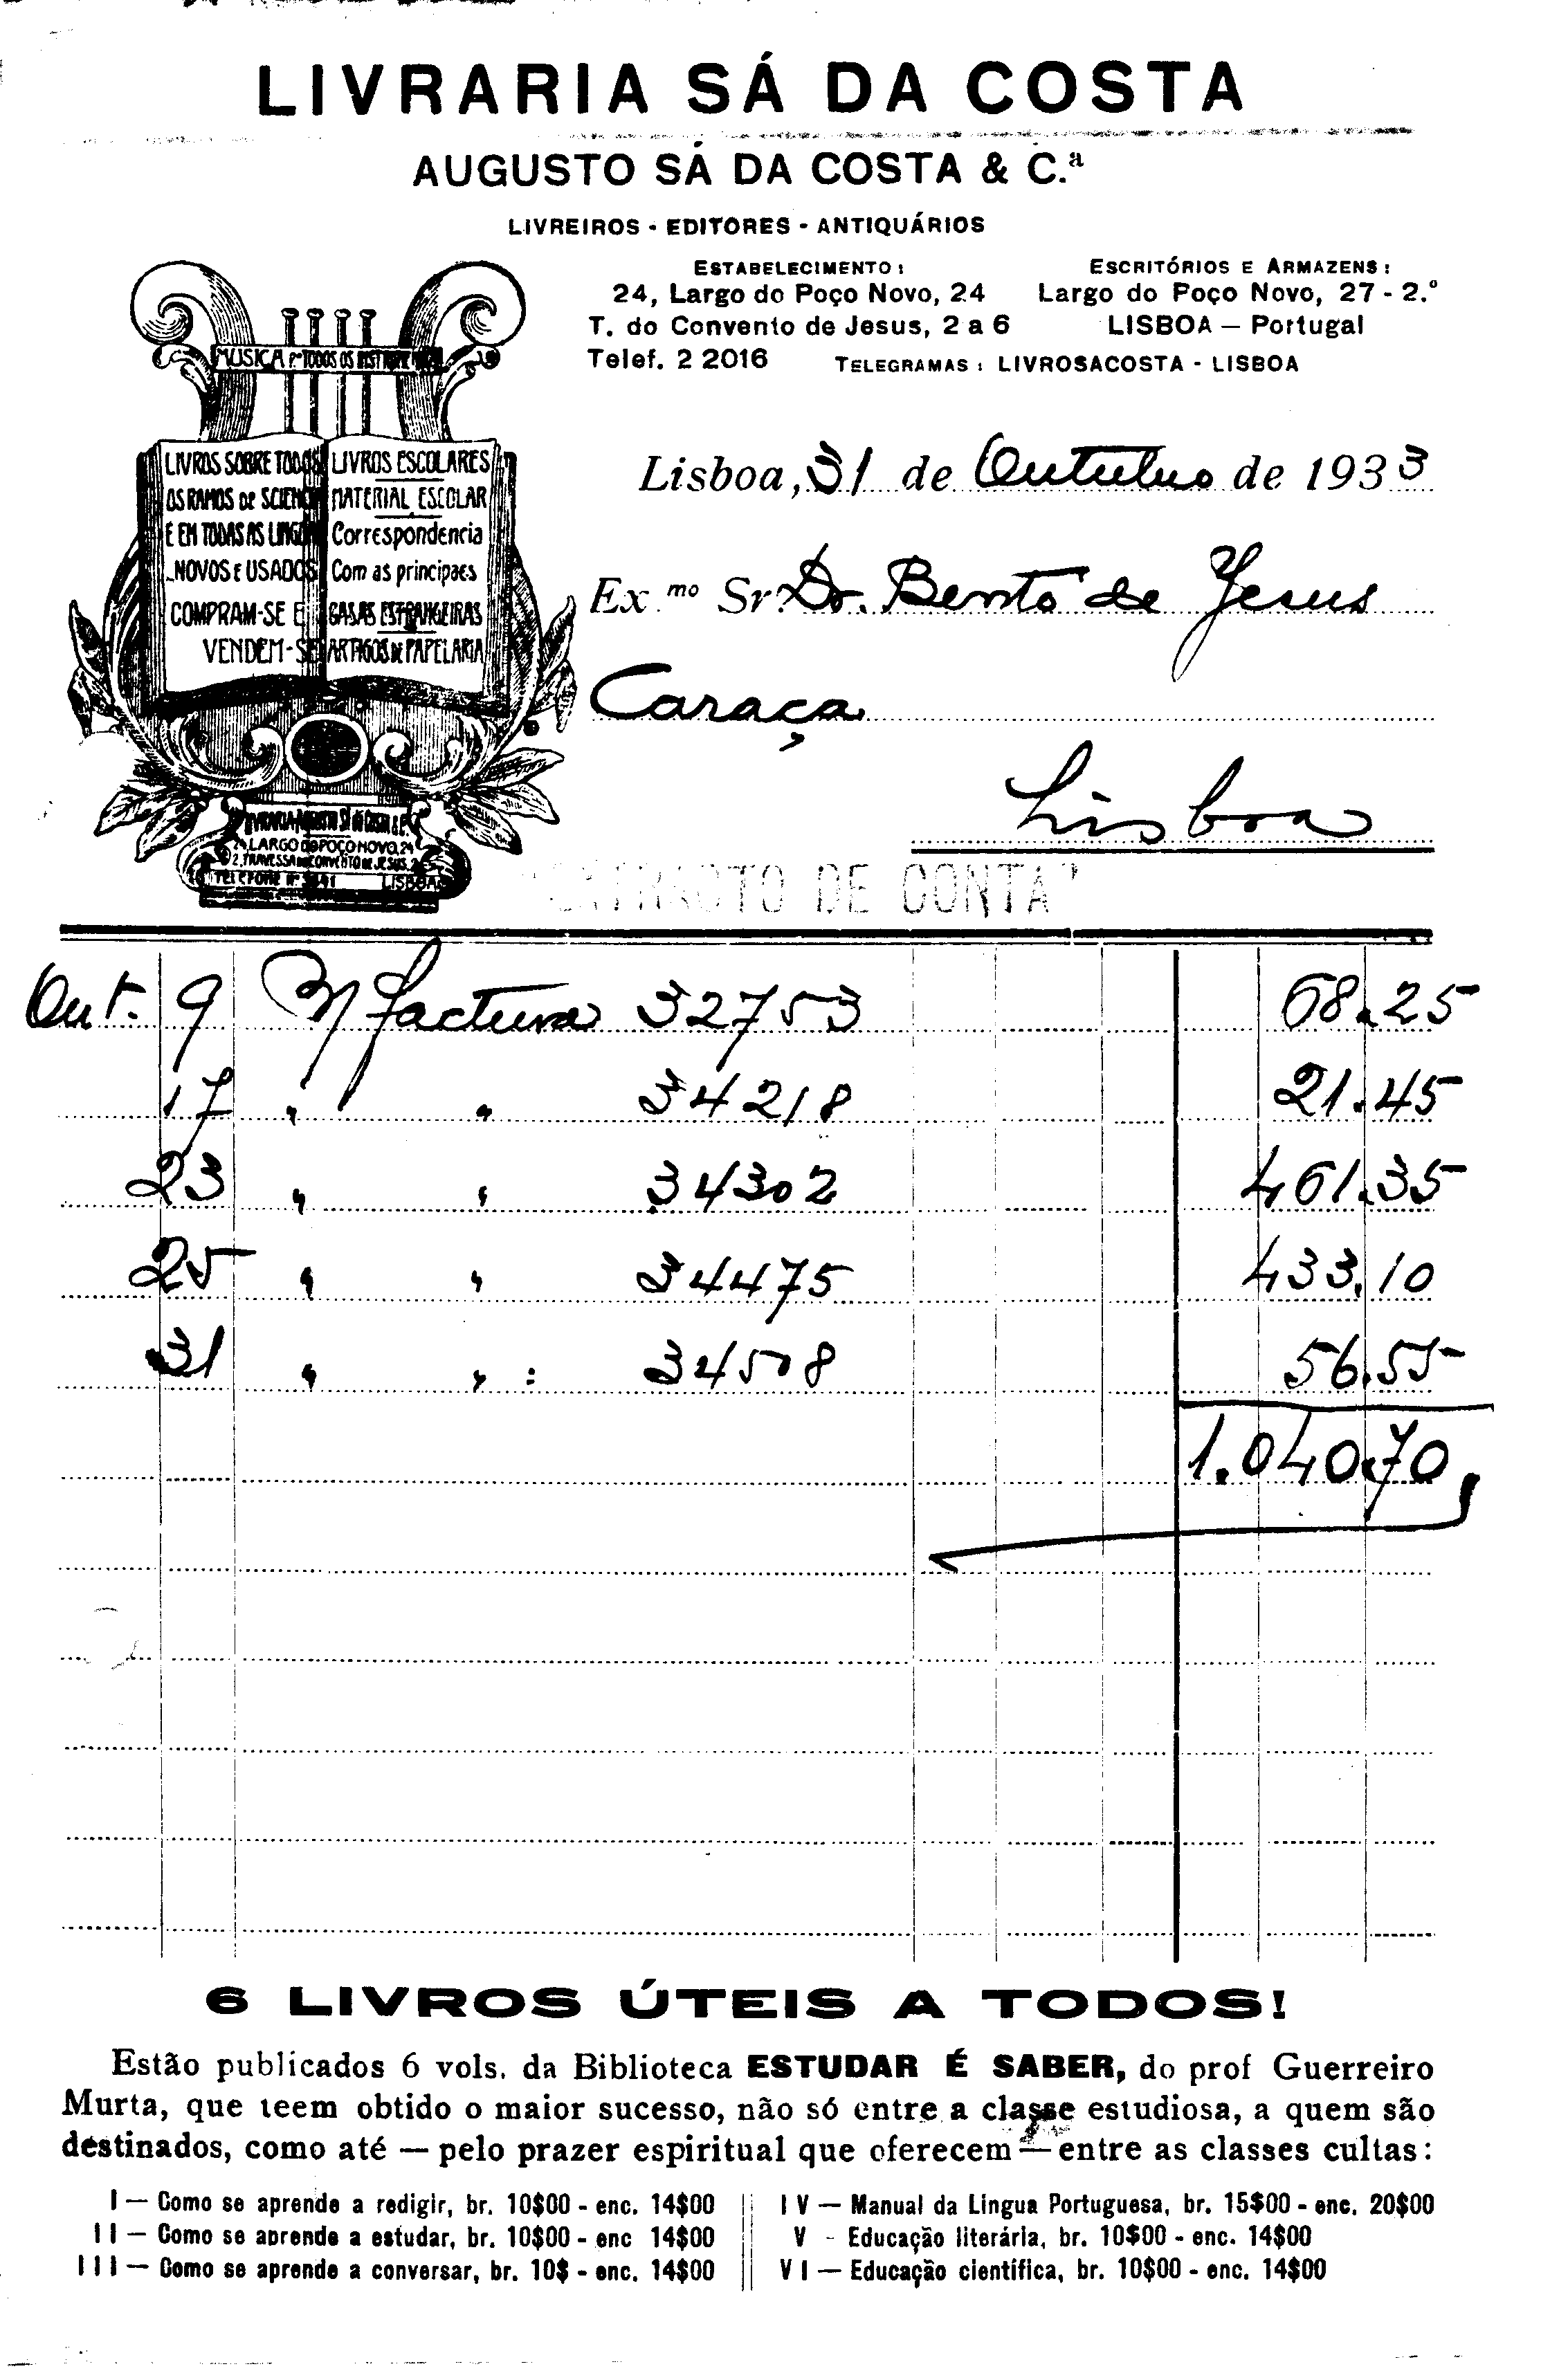 LIVRARIA SÁ DA COSTA
AUGUSTO SÁ DA COSTA & C.ª
LIVREIROS - EDITORES - ANTIQUÁRIOS
ESTABELECIMENTO:
24, Largo do Poço Novo, 24
T. do Convento de Jesus, 2 a 6
Telef. 2 2016
ESCRITÓRIOS E ARMAZENS:
Largo do Poço Novo, 27 - 2.º
LISBOA — Portugal
TELEGRAMAS: LIVROSACOSTA - LISBOA
MUSICA P.ª TODOS OS
LIVROS SOBRE TODOS
OS RAMOS DE
E EM TODAS AS
NOVOS E USADOS
COMPRAM-SE E
VENDEM-SE
LIVROS ESCOLARES
MATERIAL ESCOLAR
Correspondencia
Com as principaes
CASAS ESTRANGEIRAS
ARTIGOS DE PAPELARIA
LARGO DO POÇO NOVO, 24
2, TRAVESSA DO CONVENTO DE JESUS,
TELEFONE LISBOA
Lisboa, 31 de Outubro de 1933
Ex.mo Sr. Dr. Bento de Jesus
Caraça
Lisboa
EXTRACTO DE CONTA
Out. 9 N/ factura 32753 68.25
17 " " 34218 21.45
23 " " 34302 461.35
25 " " 34475 433.10
31 " " : 34508 56.55
1.040.70
6 LIVROS ÚTEIS A TODOS!
Estão publicados 6 vols. da Biblioteca ESTUDAR É SABER, do prof Guerreiro
Murta, que teem obtido o maior sucesso, não só entre a classe estudiosa, a quem são
destinados, como até — pelo prazer espiritual que oferecem — entre as classes cultas:
I — Como se aprende a redigir, br. 10$00 - enc. 14$00
II — Como se aprende a estudar, br. 10$00 - enc 14$00
III — Como se aprende a conversar, br. 10$ - enc. 14$00
IV — Manual da Lingua Portuguesa, br. 15$00 - enc. 20$00
V - Educação literária, br. 10$00 - enc. 14$00
VI — Educação científica, br. 10$00 - enc. 14$00